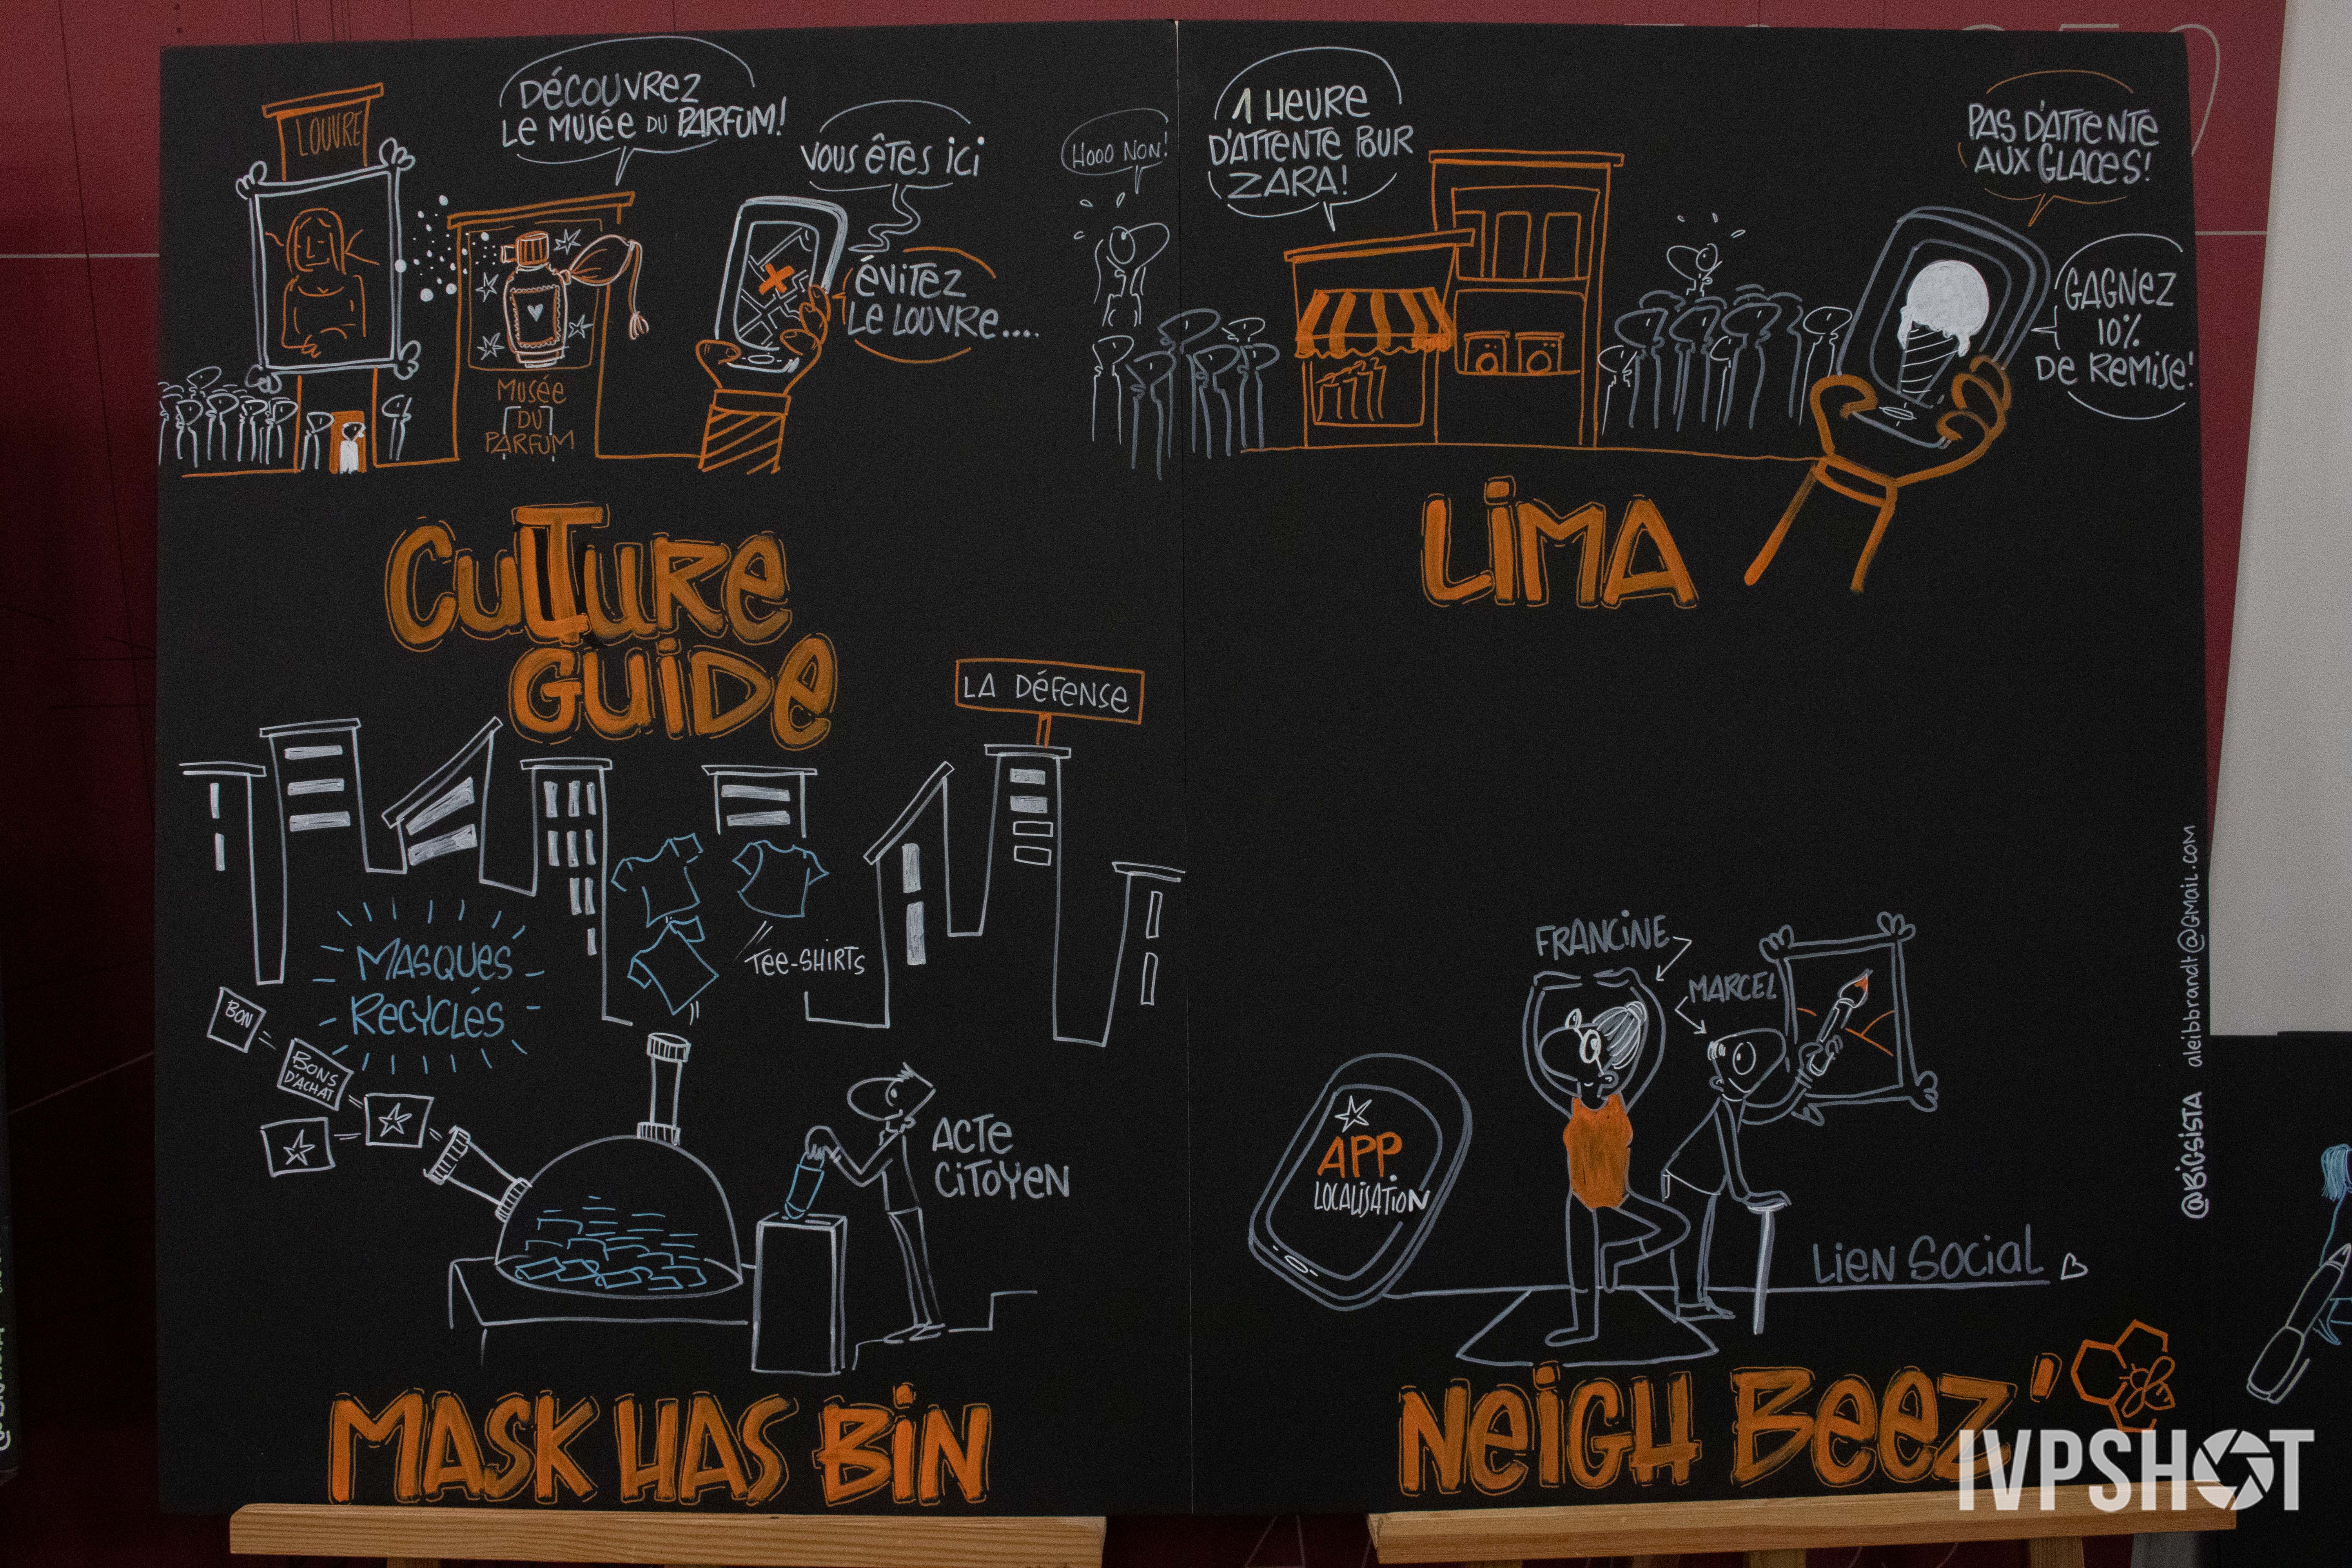 LOUVRE
DÉCOUVREZ
LE MUSÉE DU PARFUM!
VOUS ÊTES ICI
ÉVITEZ
LE LOUVRE....
MUSÉE
DU
PARFUM
CULTURE
GUIDE
HOOO NON!
1 HEURE
D'ATTENTE POUR
ZARA!
PAS D'ATTENTE
AUX GLACES!
GAGNEZ
10%
DE REMISE!
LIMA
LA DÉFENSE
MASQUES
RECYCLÉS
TEE-SHIRTS
BON
BONS
D'ACHAT
ACTE
CITOYEN
MASK HAS BIN
FRANCINE
MARCEL
APP
LOCALISATION
LIEN SOCIAL
NEIGH BEEZ'
@BIGSISTA aleibbrandt@GMAIL.COM
IVPSHOT